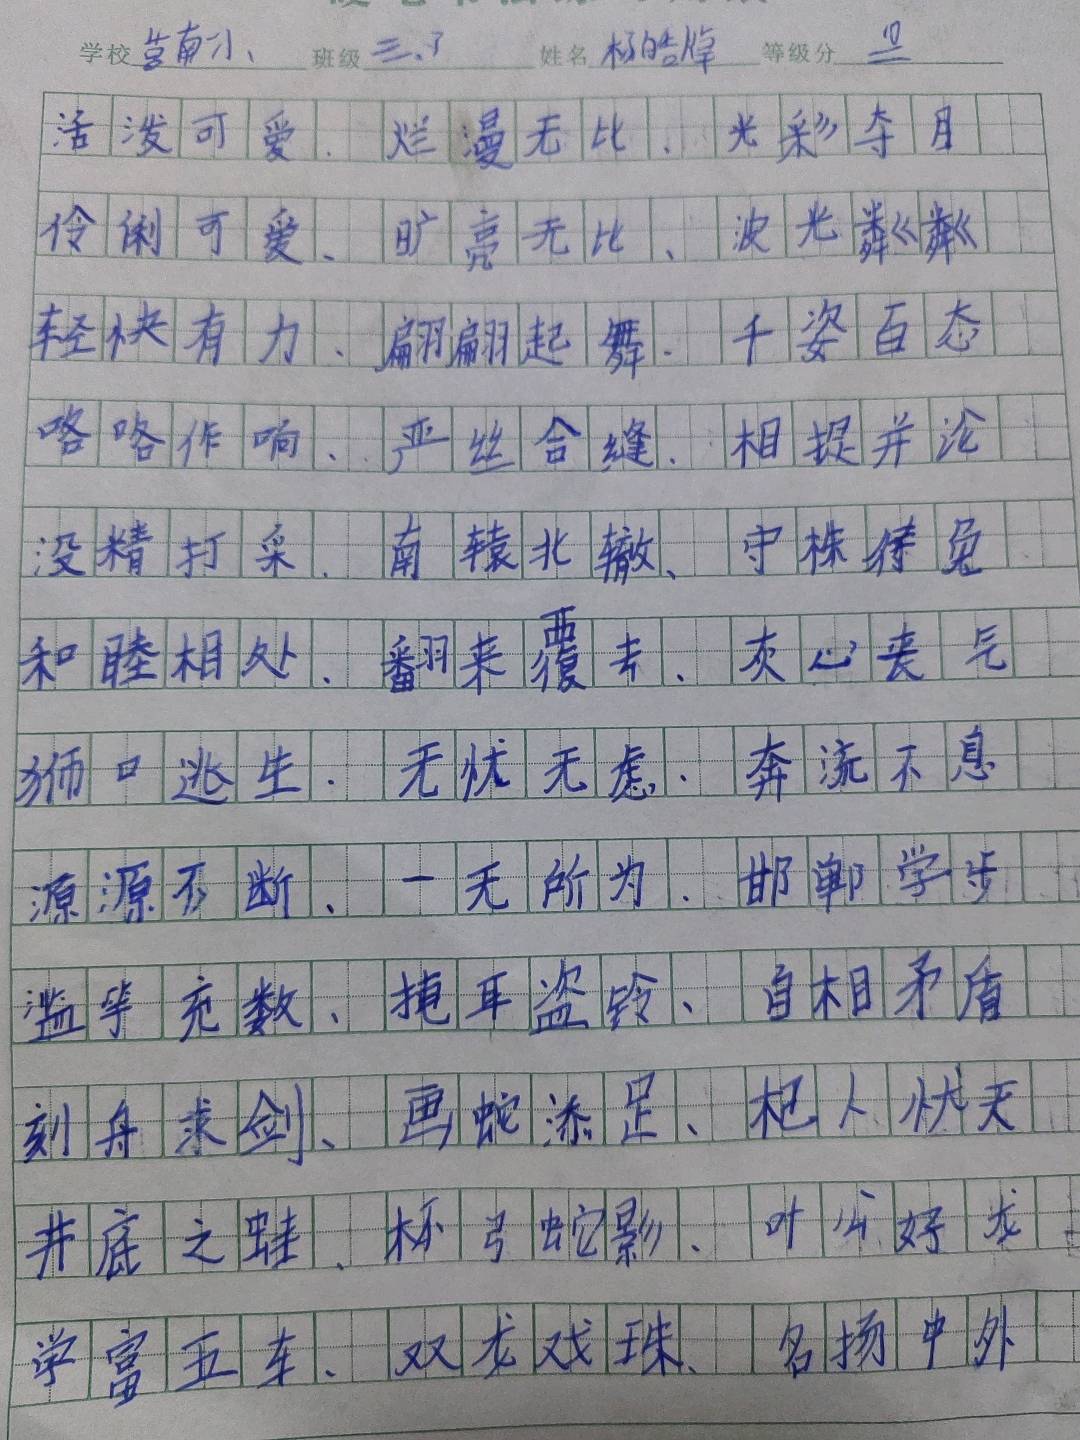 学校 莒南小 班级 三.3 姓名 杨皓焯 等级分
活泼可爱、烂漫无比、光彩夺目
伶俐可爱、旷亮无比、波光粼粼
轻快有力、翩翩起舞、千姿百态
咯咯作响、严丝合缝、相提并论
没精打采、南辕北辙、守株待兔
和睦相处、翻来覆去、灰心丧气
狮口逃生、无忧无虑、奔流不息
源源不断、一无所为、邯郸学步
滥竽充数、掩耳盗铃、自相矛盾
刻舟求剑、画蛇添足、杞人忧天
井底之蛙、杯弓蛇影、叶公好龙
学富五车、双龙戏珠、名扬中外